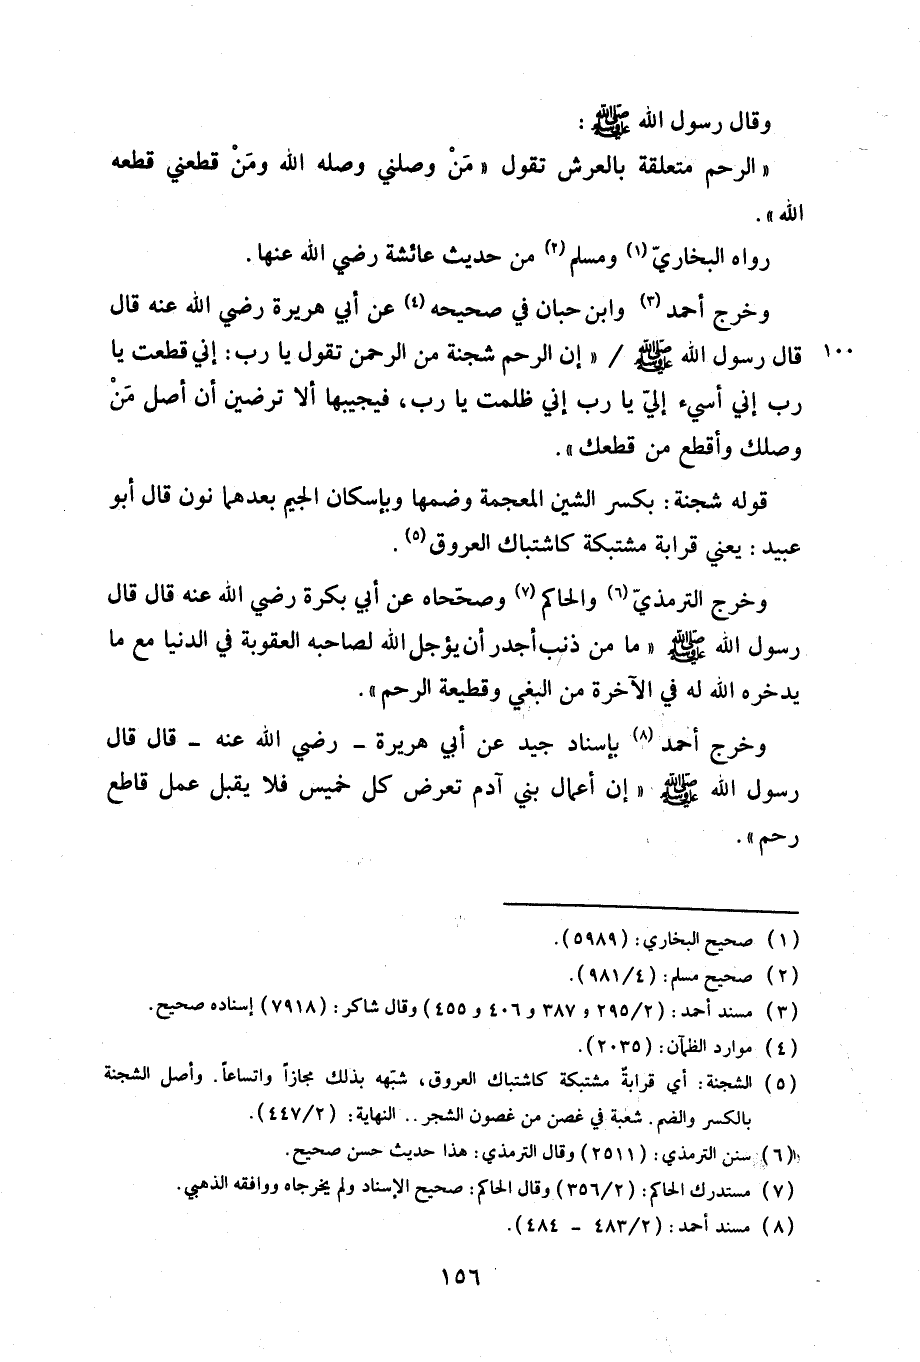 وقال رسول الله ﷺ :
« الرحم متعلقة بالعرش تقول « مَنْ وصلني وصله الله ومَنْ قطعني قطعه
الله ».
رواه البخاريّ (١) ومسلم (٢) من حديث عائشة رضي الله عنها.
وخرج أحمد (٣) وابن حبان في صحيحه (٤) عن أبي هريرة رضي الله عنه قال
١٠٠ قال رسول الله ﷺ / « إن الرحم شجنة من الرحمن تقول يا رب: إني قطعت يا
رب إني أسيء إليّ يا رب إني ظلمت يا رب، فيجيبها ألا ترضين أن أصل مَنْ
وصلك وأقطع من قطعك ».
قوله شجنة: بكسر الشين المعجمة وضمها وبإسكان الجيم بعدهما نون قال أبو
عبيد : يعني قرابة مشتبكة كاشتباك العروق (٥) .
وخرج الترمذيّ (٦) والحاكم (٧) وصحّحاه عن أبي بكرة رضي الله عنه قال قال
رسول الله ﷺ « ما من ذنب أجدر أن يؤجل الله لصاحبه العقوبة في الدنيا مع ما
يدخره الله له في الآخرة من البغي وقطيعة الرحم ».
وخرج أحمد (٨) بإسناد جيد عن أبي هريرة ـ رضي الله عنه ـ قال قال
رسول الله ﷺ « إن أعمال بني آدم تعرض كل خميس فلا يقبل عمل قاطع
رحم ».
(١) صحيح البخاري: (٥٩٨٩).
(٢) صحيح مسلم: (٩٨١/٤).
(٣) مسند أحمد: (٢٩٥/٢ و ٣٨٧ و ٤٠٦ و ٤٥٥) وقال شاكر: (٧٩١٨) إسناده صحيح.
(٤) موارد الظمآن: (٢٠٣٥).
(٥) الشجنة: أي قرابةٌ مشتبكة كاشتباك العروق، شبّهه بذلك مجازاً واتساعاً. وأصل الشجنة
بالكسر والضم. شعبة في غصن من غصون الشجر .. النهاية: (٤٤٧/٢).
(٦) سنن الترمذي: (٢٥١١) وقال الترمذي: هذا حديث حسن صحيح.
(٧) مستدرك الحاكم: (٣٥٦/٢) وقال الحاكم: صحيح الإسناد ولم يخرجاه ووافقه الذهبي.
(٨) مسند أحمد: (٤٨٣/٢ ـ ٤٨٤).
١٥٦